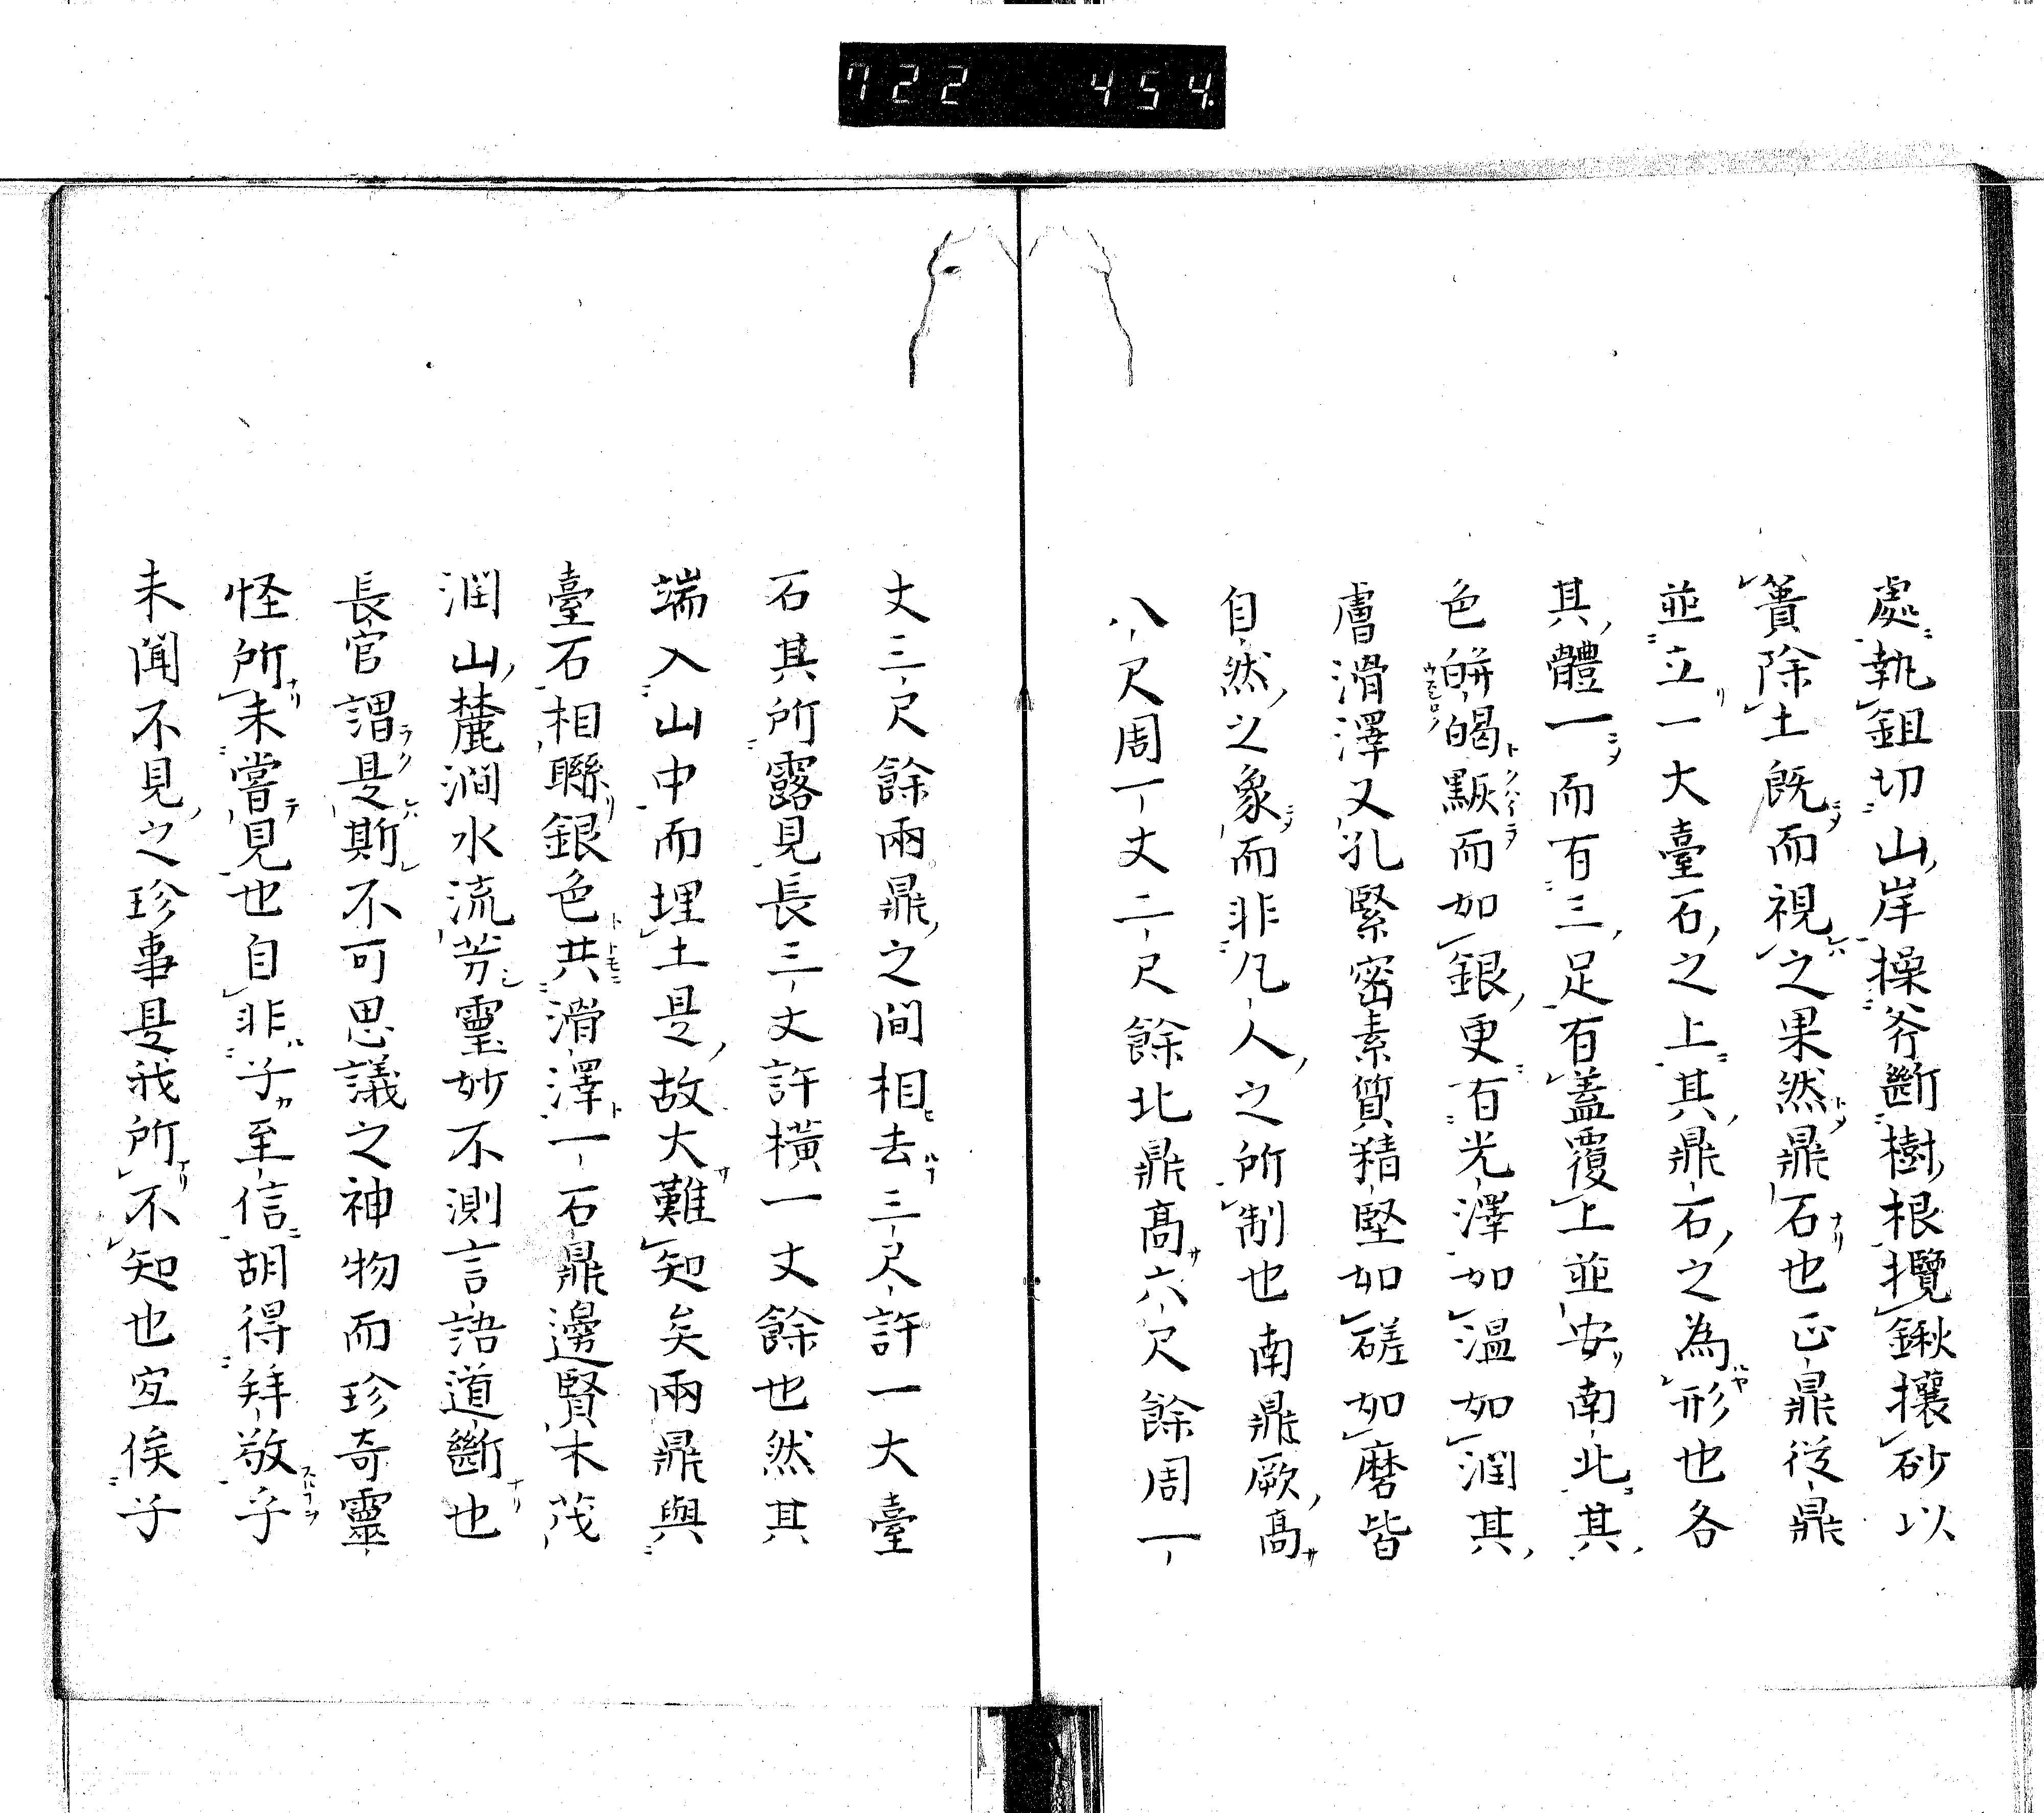 722 454
處執鉏切山岸操斧斷樹根攬鍬攘砂以
簣除土既而視之果然鼎石也正鼎從鼎
並立一大臺石之上其鼎石之為形也各
其體一而有三足有蓋覆上並安南北其
色皏㿣黰而如銀更有光澤如温如潤其
膚滑澤又孔緊密素質精堅如磋如磨皆
自然之象而非凡人之所制也南鼎厥高
八尺周一丈二尺餘北鼎高六尺餘周一
丈三尺餘兩鼎之間相去三尺許一大臺
石其所露見長三丈許橫一丈餘也然其
端入山中而埋土是故大難知矣兩鼎與
臺石相聯銀色共滑澤一石鼎邊賢木茂
潤山麓澗水流芳靈妙不測言語道斷也
長官謂是斯不可思議之神物而珍奇靈
怪所未嘗見也自非子至信胡得拜敬乎
未聞不見之珍事是我所不知也宜俟子